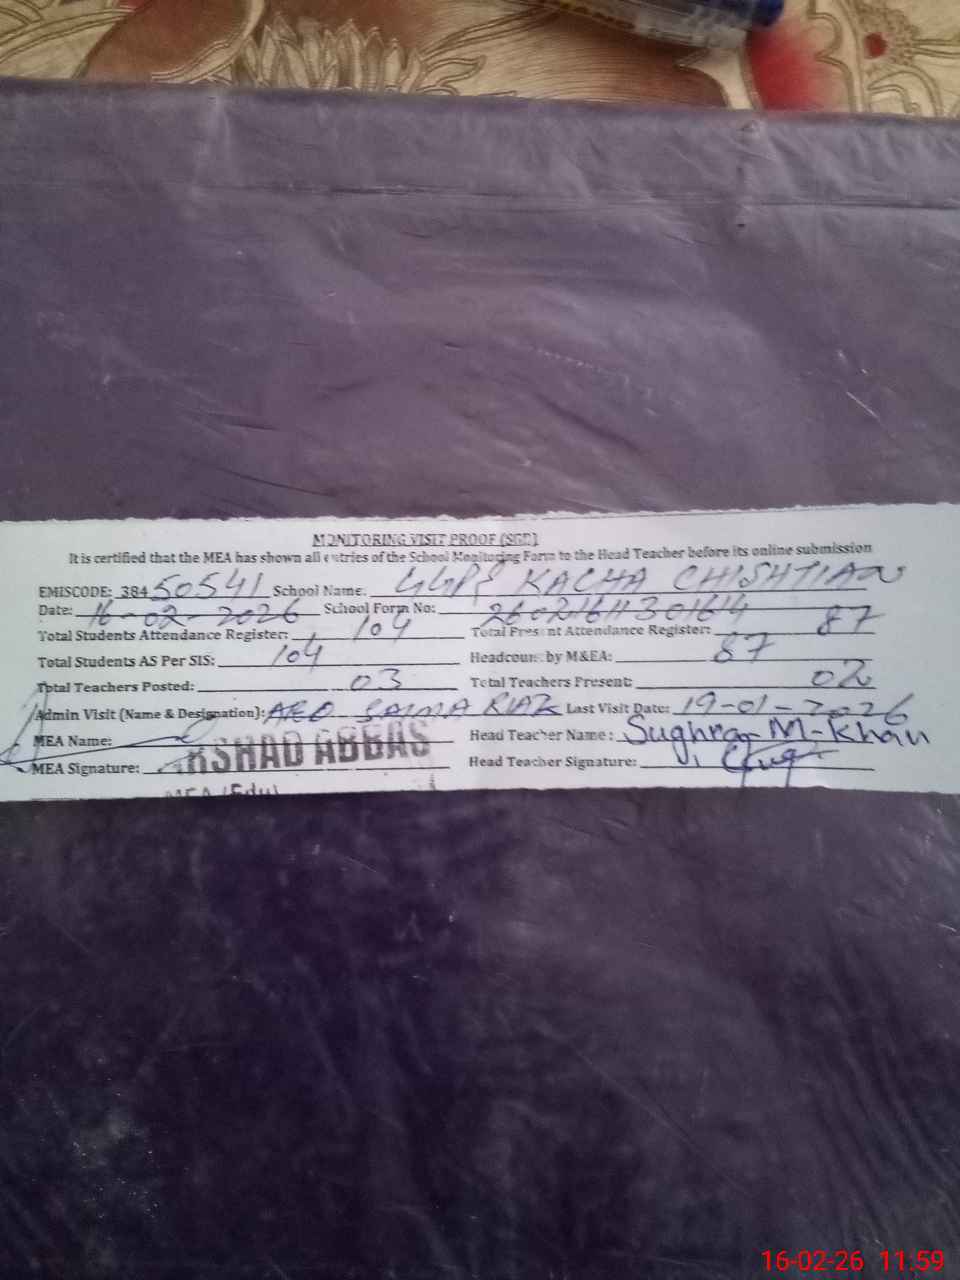 MONITORING VISIT PROOF (SED)
It is certified that the MEA has shown all entries of the School Monitoring Form to the Head Teacher before its online submission
EMISCODE: 38450541 School Name: GGPS KACHA CHISHTIAN
Date: 16-02-2026 School Form No:
Total Students Attendance Register: 104 Total Present Attendance Register: 87
Total Students AS Per SIS: 104 Headcount by M&EA: 87
Total Teachers Posted: 03 Total Teachers Present: 02
Admin Visit (Name & Designation): AEO SAIMA RIAZ Last Visit Date: 19-01-2026
MEA Name: ARSHAD ABBAS Head Teacher Name: Sughra M-Khan
MEA Signature: Head Teacher Signature:
MEA (Edu)
16-02-26 11.59